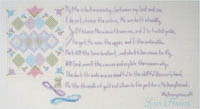 My life is but a weaving, between my God and me,
I do not choose the colors, He worketh steadily.
Oft times He weaves sorrow, and I in foolish pride,
Forget He sees the upper, and I the underside.
Not till the loom is silent, and shuttles cease to fly,
Will God unroll the canvas and explain the reason why.
The dark threads are as needful in the skillful Weaver's hand,
As the threads of gold and silver in the pattern He has planned.